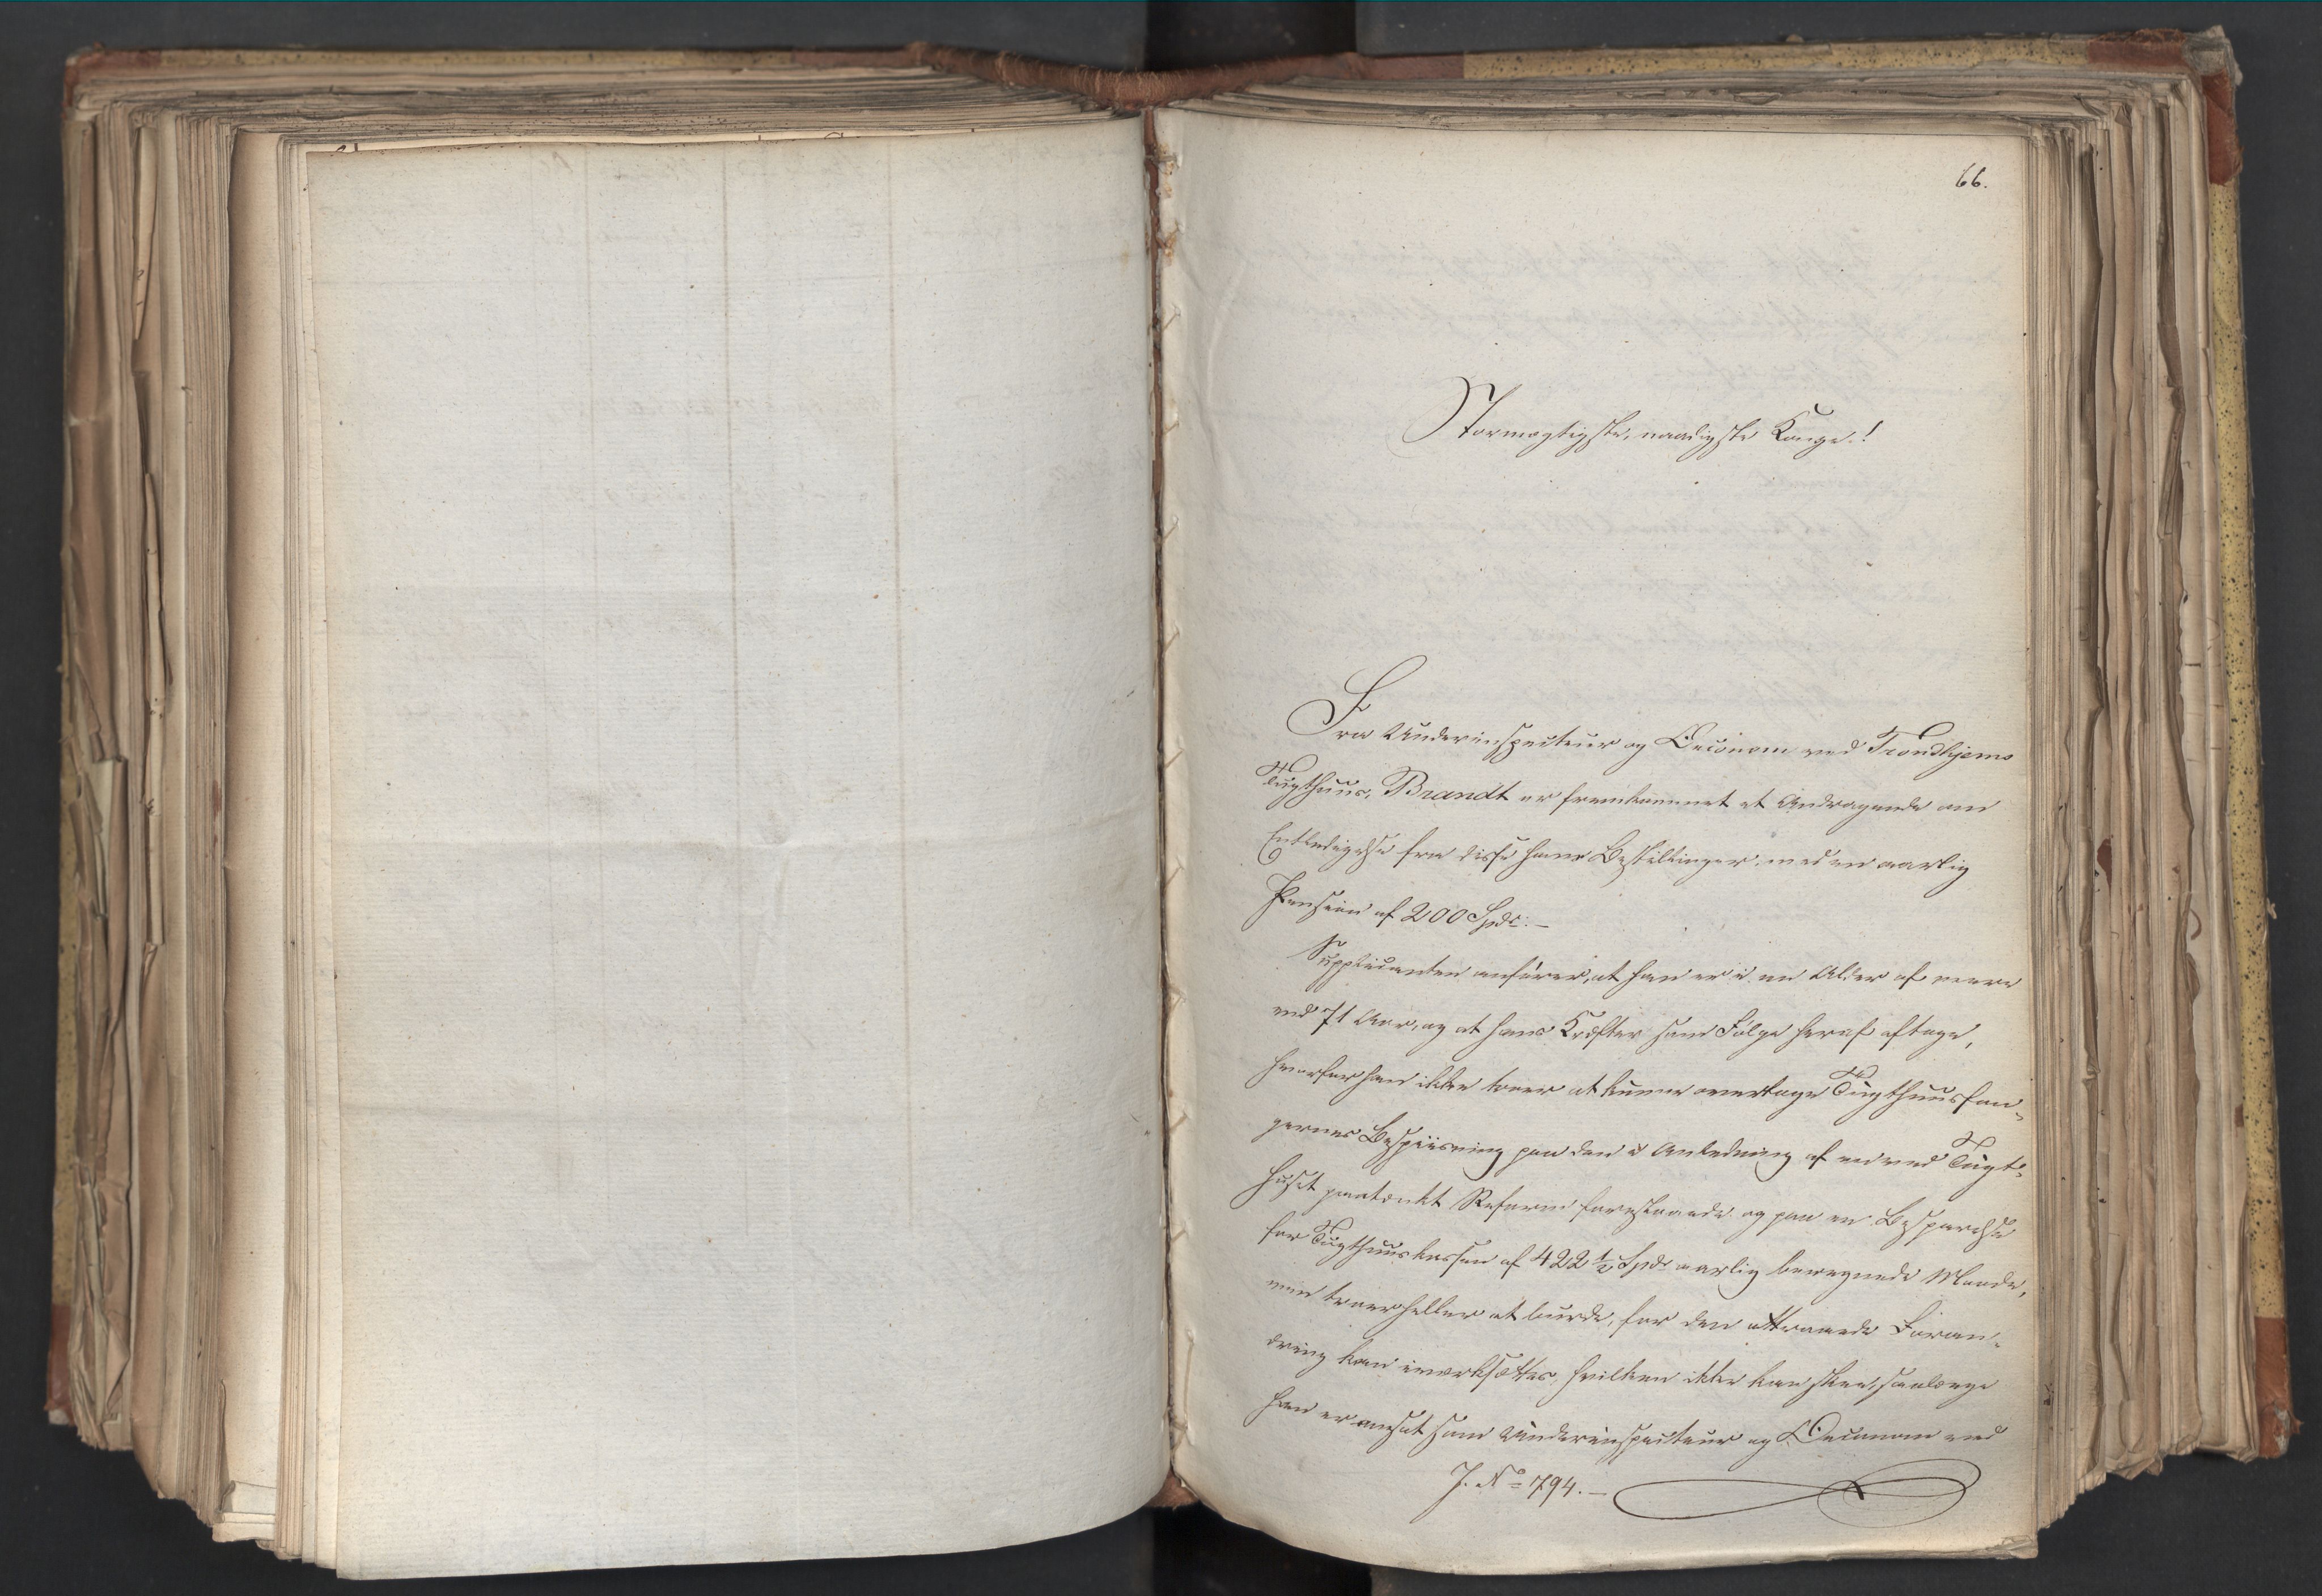 66.
Stormægtigste, naadigste Konge!
Fra Underinspecteur og Oeconom ved Trondhjems
Tugthuus, Brandt er fremkommet et Andragende om
Entledigelse fra disse hans Bestillinger, med en aarlig
Pension af 200 Spdr:-
Supplicanten anfører, at han er i en Alder af mere
end 71 Aar, og at hans Kræfter som Følge heraf aftage,
hvorfor han ikke troer at kunne overtage Tugthuusfan-
gernes Bespiisning paa den i Anledning af en ved Tugt-
huset paatænkt Reform foreslaaede og paa en Besparelse
for Tugthuuskassen af 422½ Spdr aarlig beregnede Maade,
men troer heller at burde, for den attraaede Foran-
dring kan iværksættes, hvilken ikke kan skee, saalænge
han er ansat som Underinspecteur og Oeconom ved
J. No 794.-